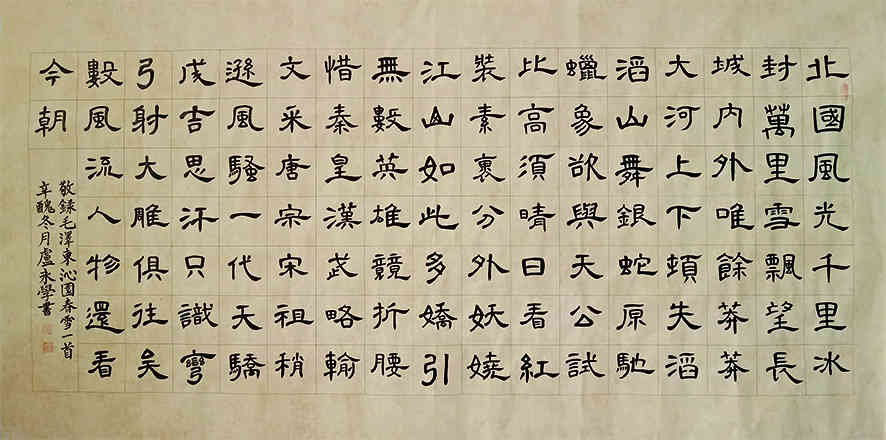 北國風光千里冰
封萬里雪飄望長
城内外唯餘莽莽
大河上下頓失滔
滔山舞銀蛇原馳
蠟象欲與天公試
比高須晴日看紅
裝素裹分外妖嬈
江山如此多嬌引
無數英雄競折腰
惜秦皇漢武略輸
文采唐宗宋祖稍
遜風騷一代天驕
成吉思汗只識彎
弓射大雕俱往矣
數風流人物還看
今朝
敬錄毛澤東沁園春雪一首
辛醜冬月盧永學書